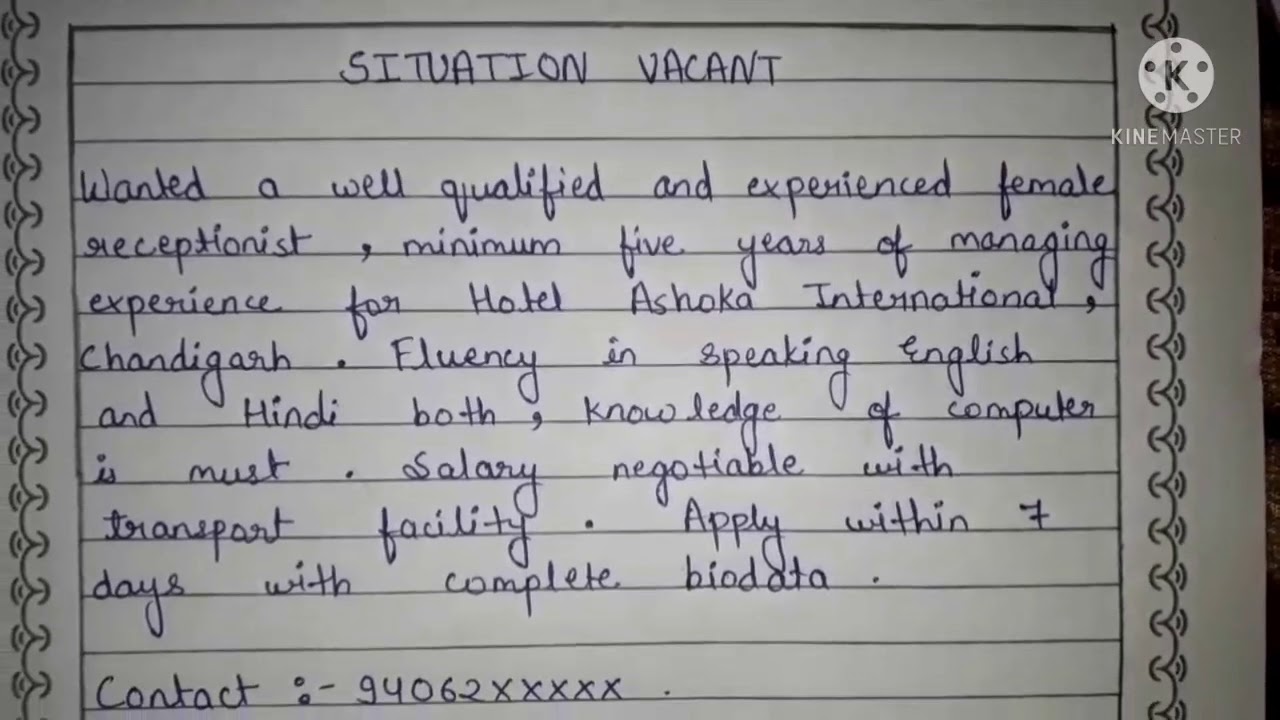 SITUATION VACANT
KINEMASTER
Wanted a well qualified and experienced female
receptionist , minimum five years of managing
experience for Hotel Ashoka International ,
Chandigarh . Fluency in speaking English
and Hindi both , Knowledge of computer
is must . Salary negotiable with
transport facility . Apply within 7
days with complete biodata .
Contact :- 94062XXXXX .